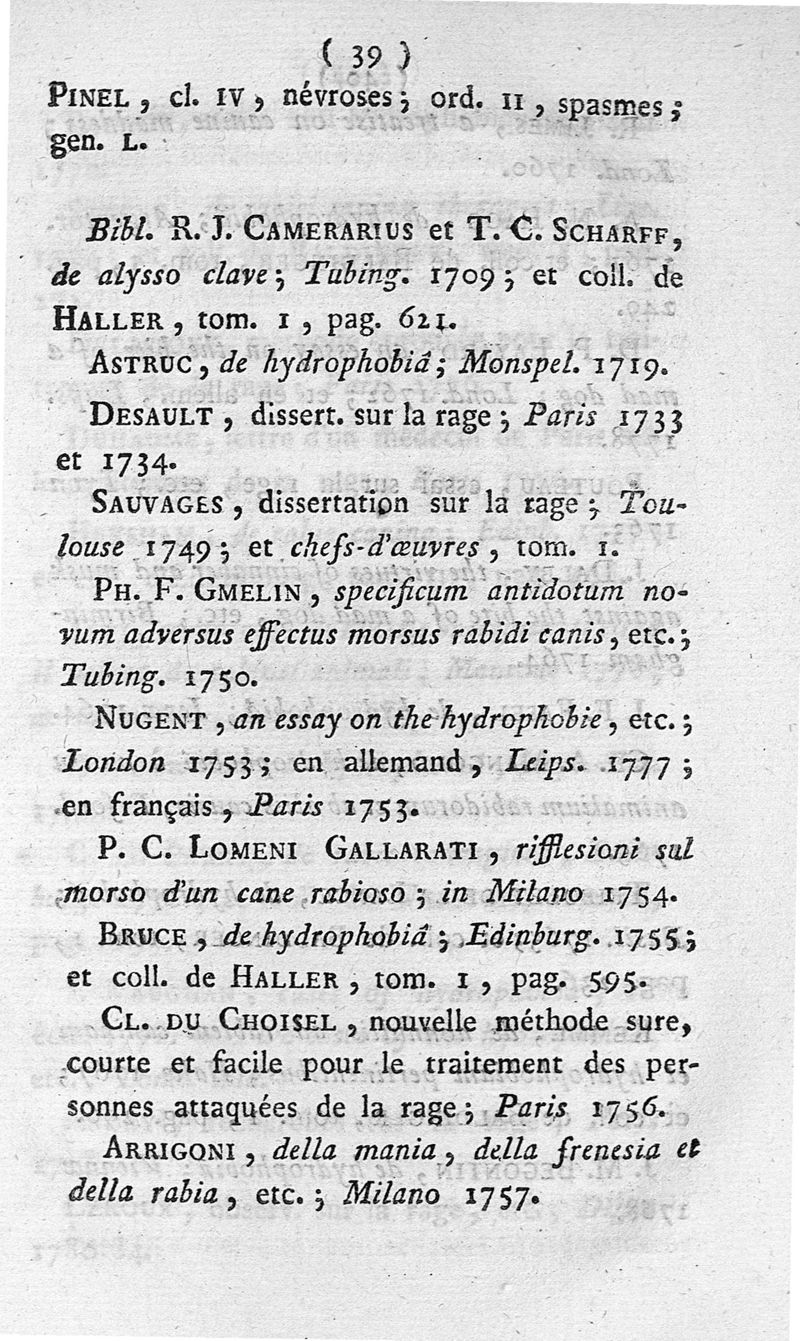 ( 39 )
PINEL , cl. IV , névroses ; ord. II , spasmes ;
gen. L.
Bibl. R. J. CAMERARIUS et T. C. SCHARFF,
de alysso clave ; Tubing. 1709 ; et coll. de
HALLER , tom. 1 , pag. 621.
ASTRUC , de hydrophobiâ ; Monspel. 1719.
DESAULT , dissert. sur la rage ; Paris 1733
et 1734.
SAUVAGES , dissertation sur la rage ; Tou-
louse 1749 ; et chefs-d'œuvres , tom. 1.
PH. F. GMELIN , specificum antidotum no-
vum adversus effectus morsus rabidi canis, etc. ;
Tubing. 1750.
NUGENT , an essay on the hydrophobie , etc. ;
London 1753 ; en allemand , Leips. 1777 ;
en français , Paris 1753.
P. C. LOMENI GALLARATI , rifflesioni sul
morso d'un cane rabioso ; in Milano 1754.
BRUCE , de hydrophobiâ ; Edinburg. 1755 ;
et coll. de HALLER , tom. 1 , pag. 595.
CL. DU CHOISEL , nouvelle méthode sure,
courte et facile pour le traitement des per-
sonnes attaquées de la rage ; Paris 1756.
ARRIGONI , della mania , della frenesia et
della rabia , etc. ; Milano 1757.